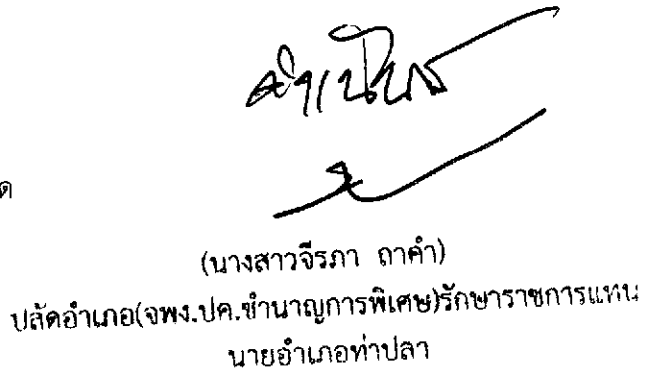 ดำเนินการ
ด
(นางสาวจีรภา ถาคำ)
ปลัดอำเภอ(จพง.ปค.ชำนาญการพิเศษ)รักษาราชการแทน
นายอำเภอท่าปลา